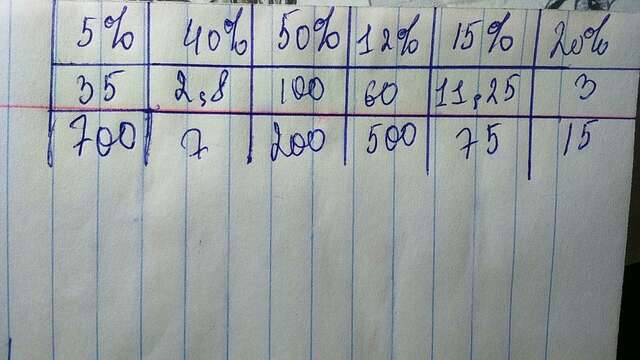 5% 40% 50% 12% 15% 20%
35 2,8 100 60 11,25 3
700 7 200 500 75 15